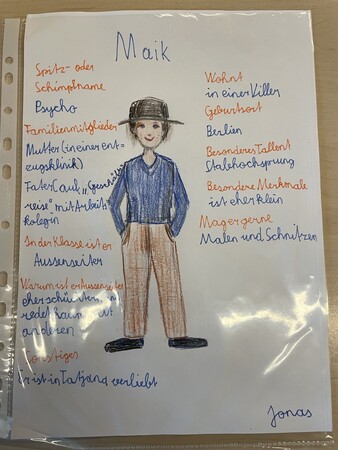 Maik
Spitz- oder
Schimpfname
Psycho
Familienmitglieder
Mutter (in einer ent-
zugsklinik)
Fater (auf „Geschäfts
reise" mit Arbeits
kolegin
In der Klasse ist er
Aussenseiter
Warum ist er Aussenseiter
eher schüchtern,
redet kaum mit
anderen
Sonstiges
Er ist in Tatjana verliebt
Wohnt
in einer Viller
Geburtsort
Berlien
Besonderes Tallent
Stalehochsprung
Besondere Merkmale
ist eher klein
Mag er gerne
Malen und Schnitzen
Jonas